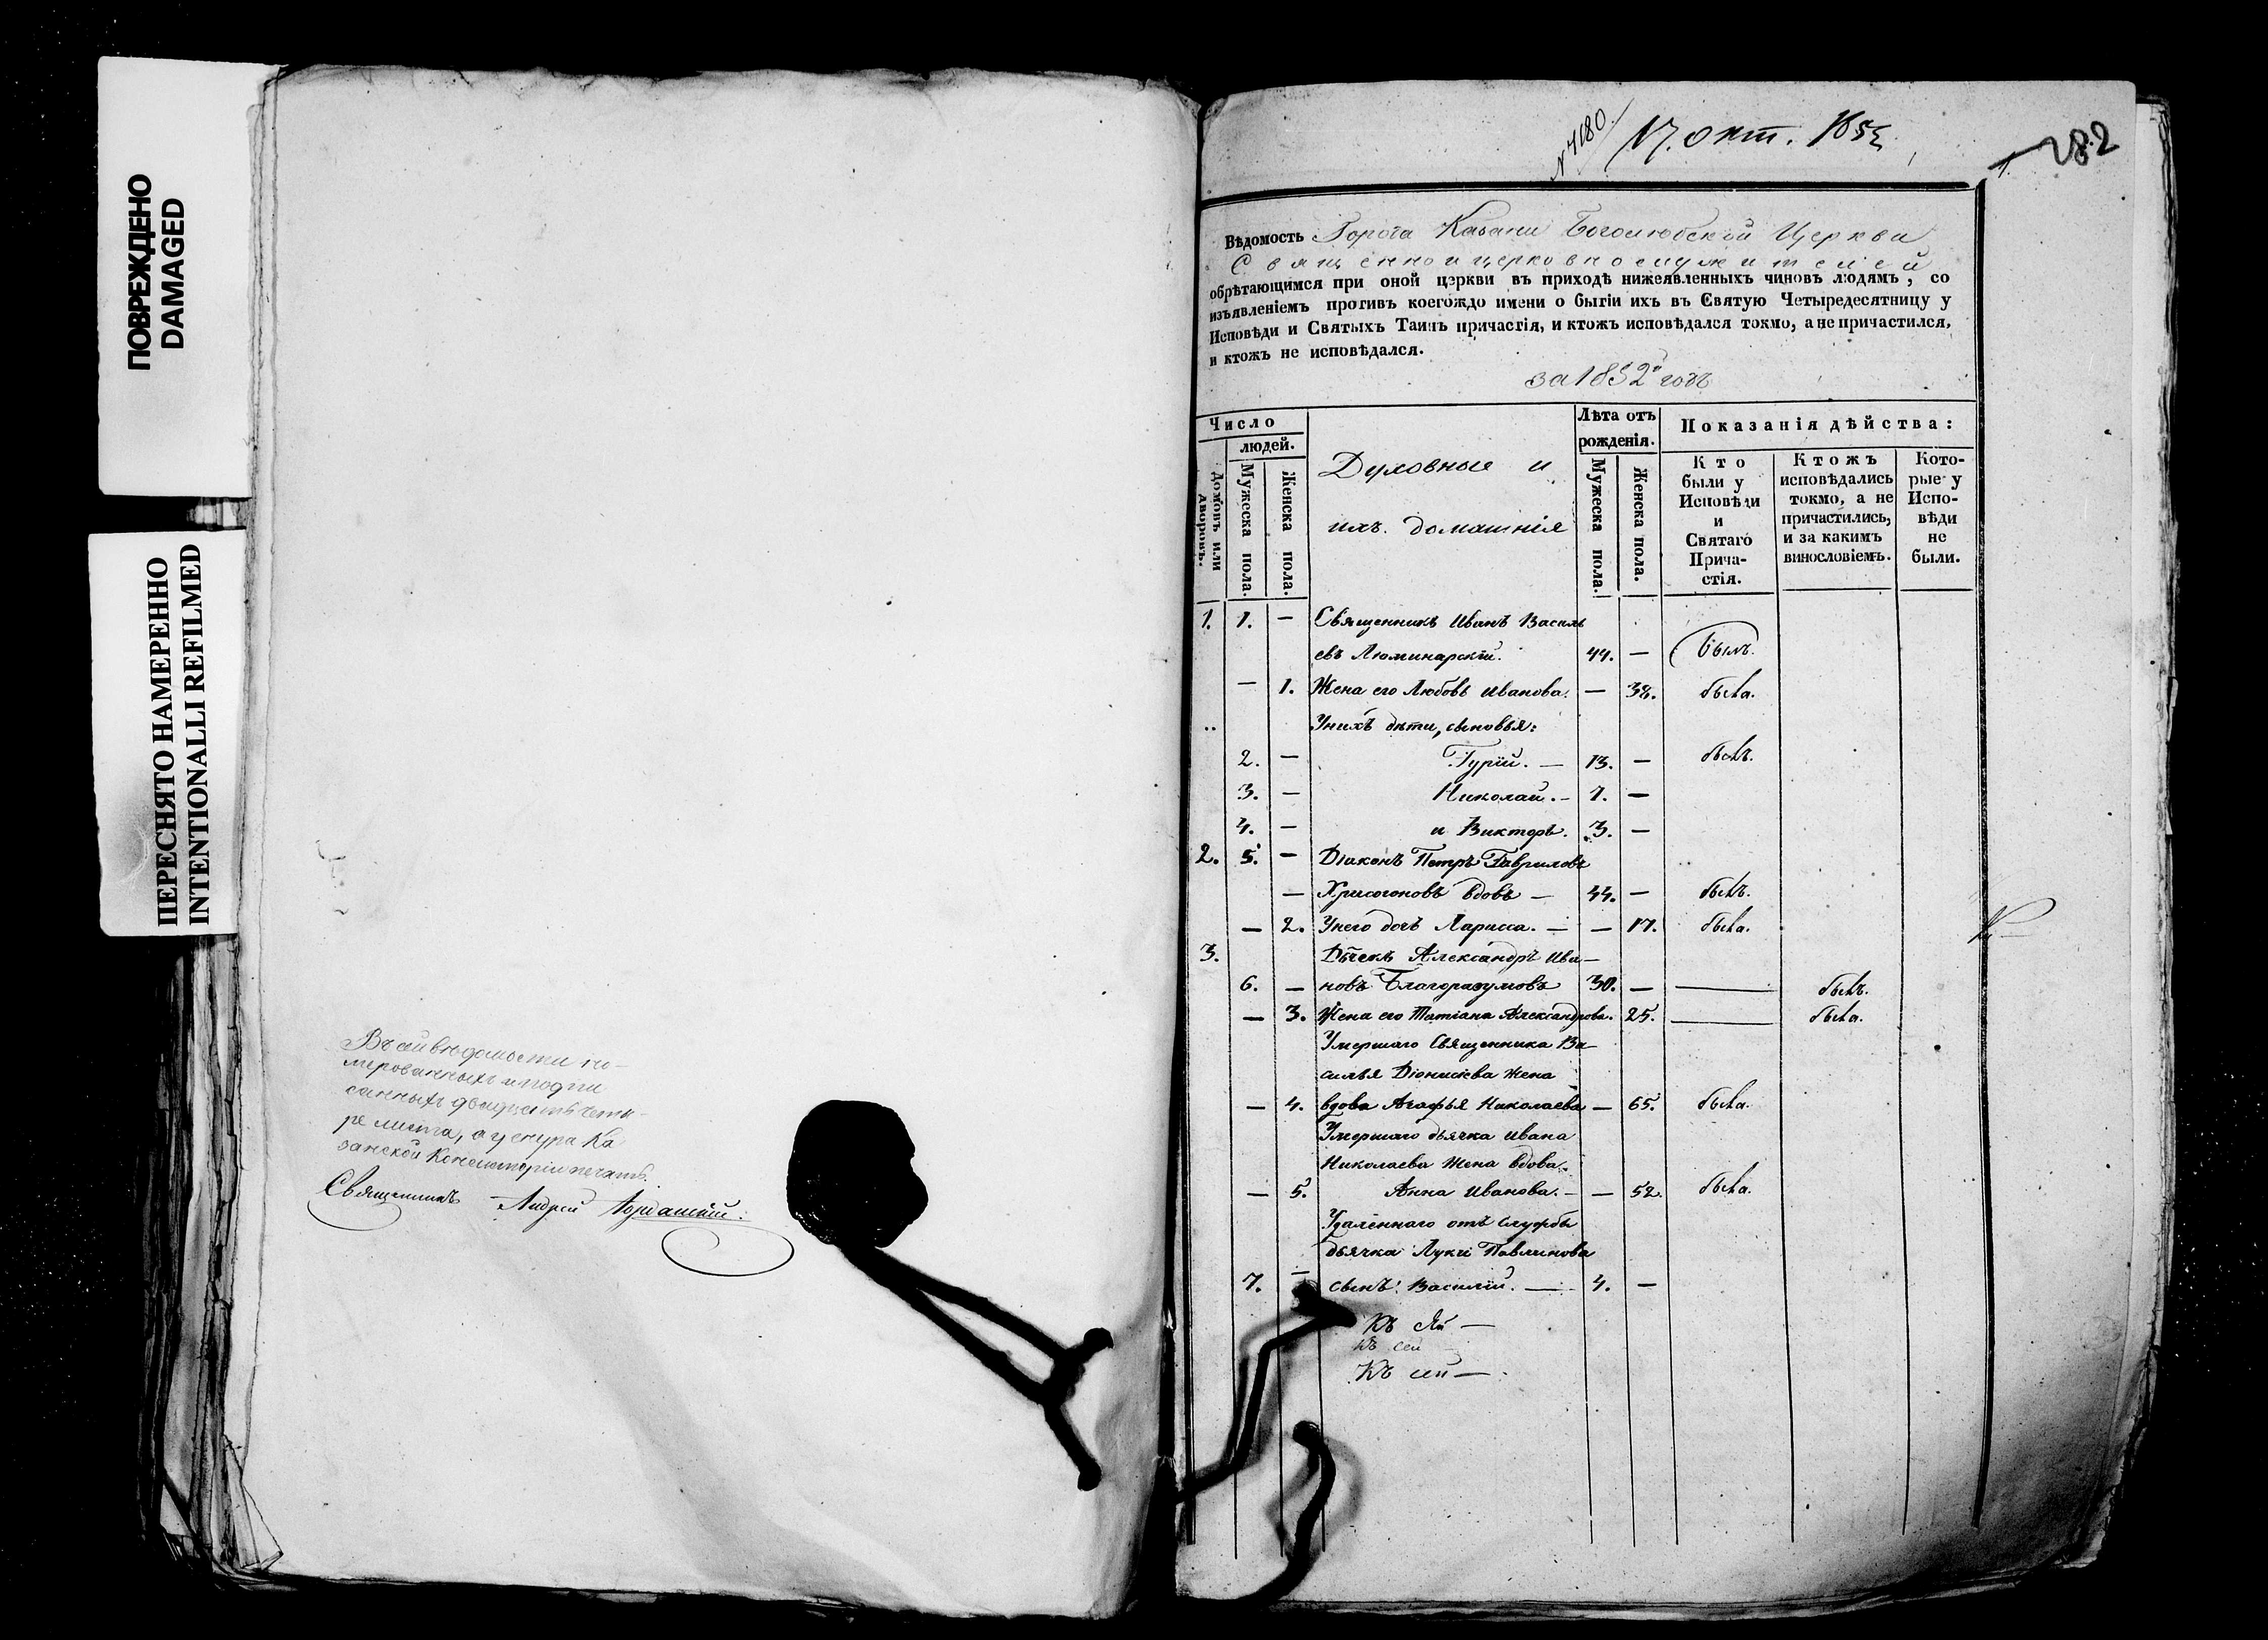 ПОВРЕЖДЕНО
DAMAGED
ПЕРЕСНЯТО НАМЕРЕННО
INTENTIONALLI REFILMED
Въ сей вѣдомости ну-
мерованныхъ и подпи
санныхъ двадцать четы-
ре листа, а у снура Ка
занской Консисторіи печать.
Священникъ Андрей
№ 4180. / 17. Окт. 1852
1. 282
Вѣдомость Города Казани Боголюбской Церкви
Священно и церковнослужителей
обрѣтающимся при оной церкви въ приходѣ нижеявленныхъ чиновъ людямъ, со
изъявленіемъ противъ коегождо имени о бытіи ихъ въ Святую Четыредесятницу у
Исповѣди и Святыхъ Таинъ причастія, и ктожъ исповѣдался токмо, а не причастился,
и ктожъ не исповѣдался.
за 1852й годъ
Число
людей.
Домовъ или дворовъ.
Мужеска пола.
Женска пола.
Духовные и
ихъ домашніе
Лѣта отъ
рожденія.
Мужеска пола.
Женска пола.
Показанія дѣйства:
Кто
были у
Исповѣди
и
Святаго
Прича-
стія.
Ктожъ
исповѣдались
токмо, а не
причастились,
и за какимъ
винословіемъ.
Кото-
рые у
Испо-
вѣди
не
были.
1. 1. — Священникъ Иванъ Василь
евъ Люминарскій. 44. — былъ.
— 1. Жена его Любовь Иванова. — 38. была.
У нихъ дѣти, сыновья:
2. — Гурій. — 13. — былъ.
3. — Николай. — 7. —
4. — и Викторъ. 3. —
2. 5. — Діаконъ Петръ Гавриловъ
— Хрисогоновъ вдовъ — 44. — былъ.
— 2. У него дочьЛарисса. — — 17. была.
3. Дьячекъ Александръ Ива—
6. — новъ Благоразумовъ 30. — — былъ.
— 3. Жена его Татіана Александрова. 25. — была.
Умершаго Священника Ва—
силья Діонисіева жена
— 4. вдова Агафья Николаева — 65. была.
Умершаго дьячка Ивана
Николаева жена вдова.
— 5. Анна Иванова. — — 52. была.
Удаленнаго отъ службы
дьячка Луки Павлинова
7. — сынъ: Василій. — 4. —
Къ сей —
Къ сей
Къ сей —